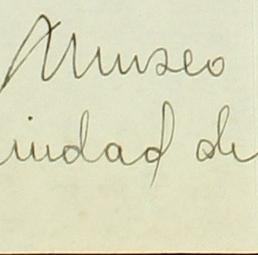 Museo
iudad de